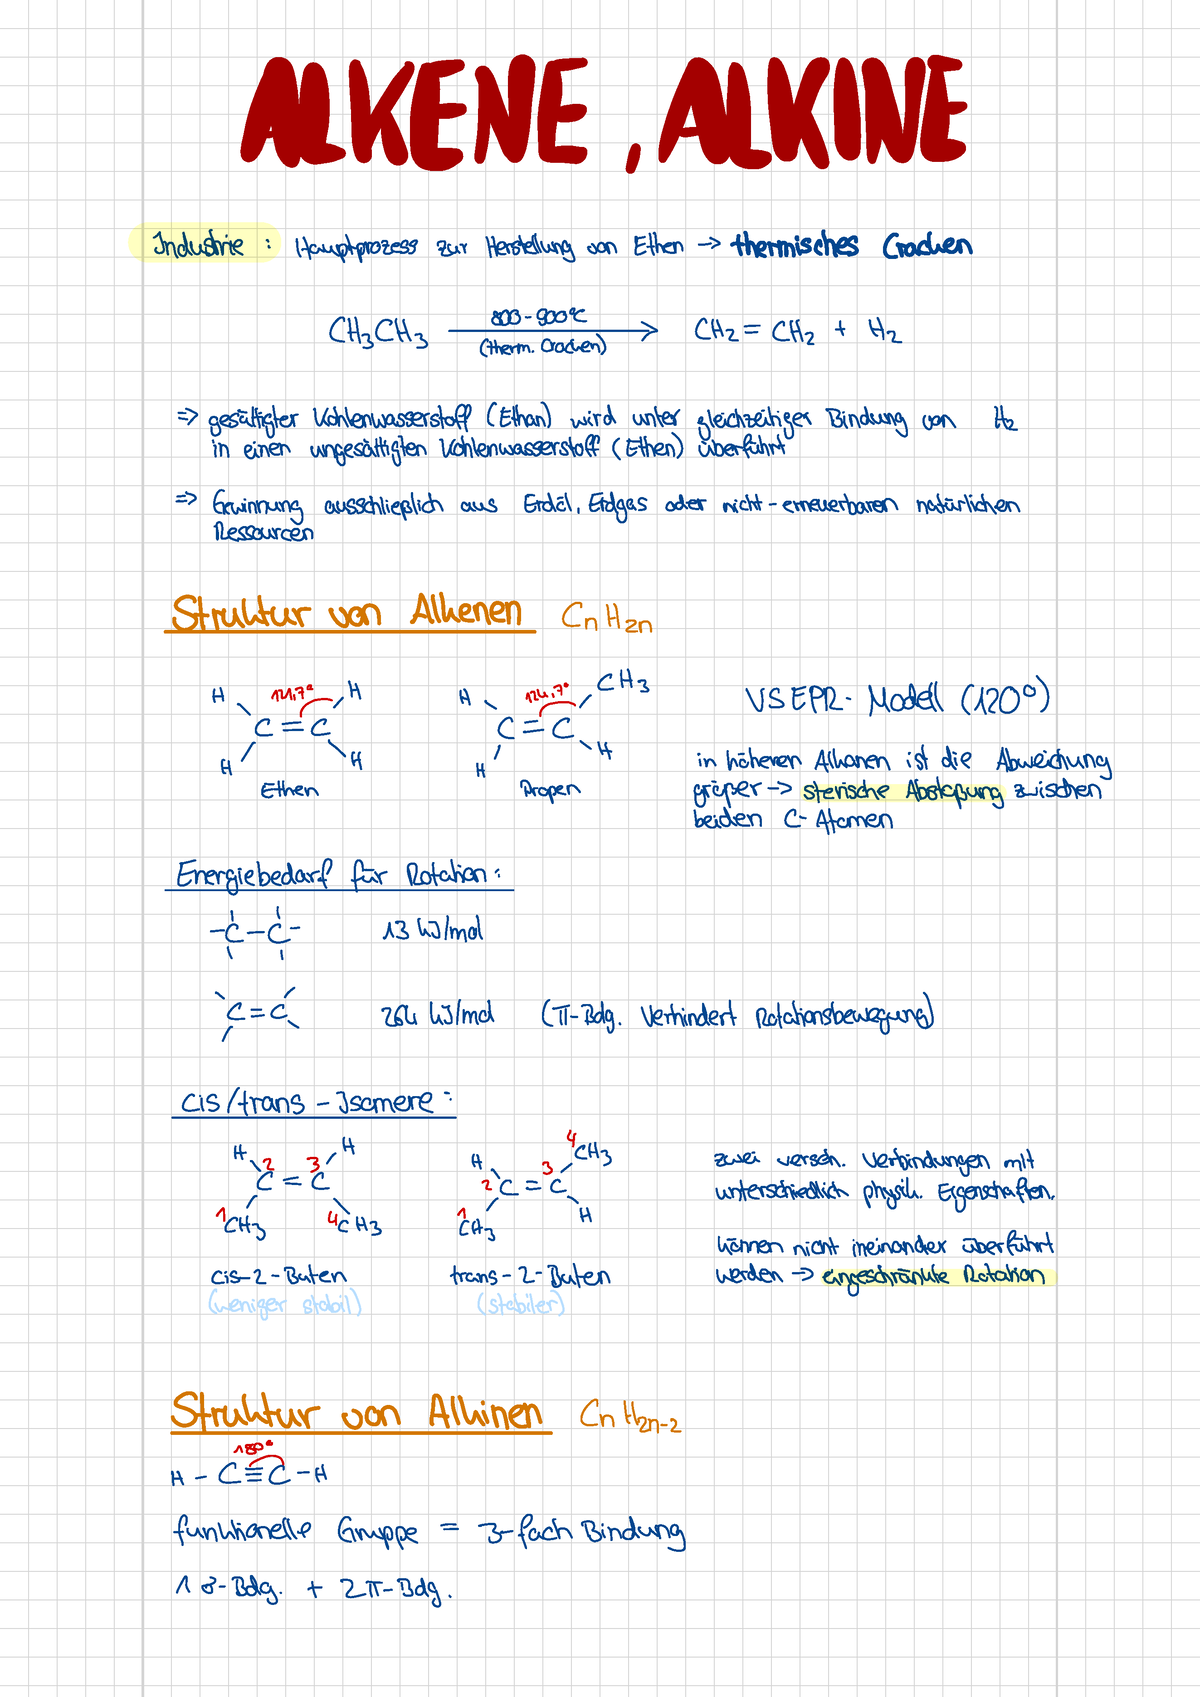 ALKENE, ALKINE
Industrie: Hauptprozess zur Herstellung von Ethen → thermisches Cracken
CH₃CH₃ 800-900°C (therm. Cracken) → CH₂ = CH₂ + H₂
⇒ gesättigter Kohlenwasserstoff (Ethan) wird unter gleichzeitiger Bindung von H₂
in einen ungesättigten Kohlenwasserstoff (Ethen) überführt
⇒ Gewinnung ausschließlich aus Erdöl, Erdgas oder nicht-erneuerbaren natürlichen
Ressourcen
Struktur von Alkenen CnH2n
H 121,7° H
C = C
H H
Ethen
H 124,7° CH₃
C = C
H H
Propen
VSEPR-Modell (120°)
in höheren Alkanen ist die Abweichung
größer → sterische Abstoßung zwischen
beiden C-Atomen
Energiebedarf für Rotation:
-C-C- 13 kJ/mol
C=C 264 kJ/mol (π-Bdg. verhindert Rotationsbewegung)
cis/trans-Isomere:
H 2 3 H
C = C
1 CH₃ 4 CH₃
cis-2-Buten
(weniger stabil)
H 3 4 CH₃
2 C = C
1 CH₃ H
trans-2-Buten
(stabiler)
zwei versch. Verbindungen mit
unterschiedlich physik. Eigenschaften.
können nicht ineinander überführt
werden → eingeschränkte Rotation
Struktur von Alkinen CnH2n-2
180°
H - C≡C - H
funktionelle Gruppe = 3-fach Bindung
1 σ-Bdg. + 2π-Bdg.